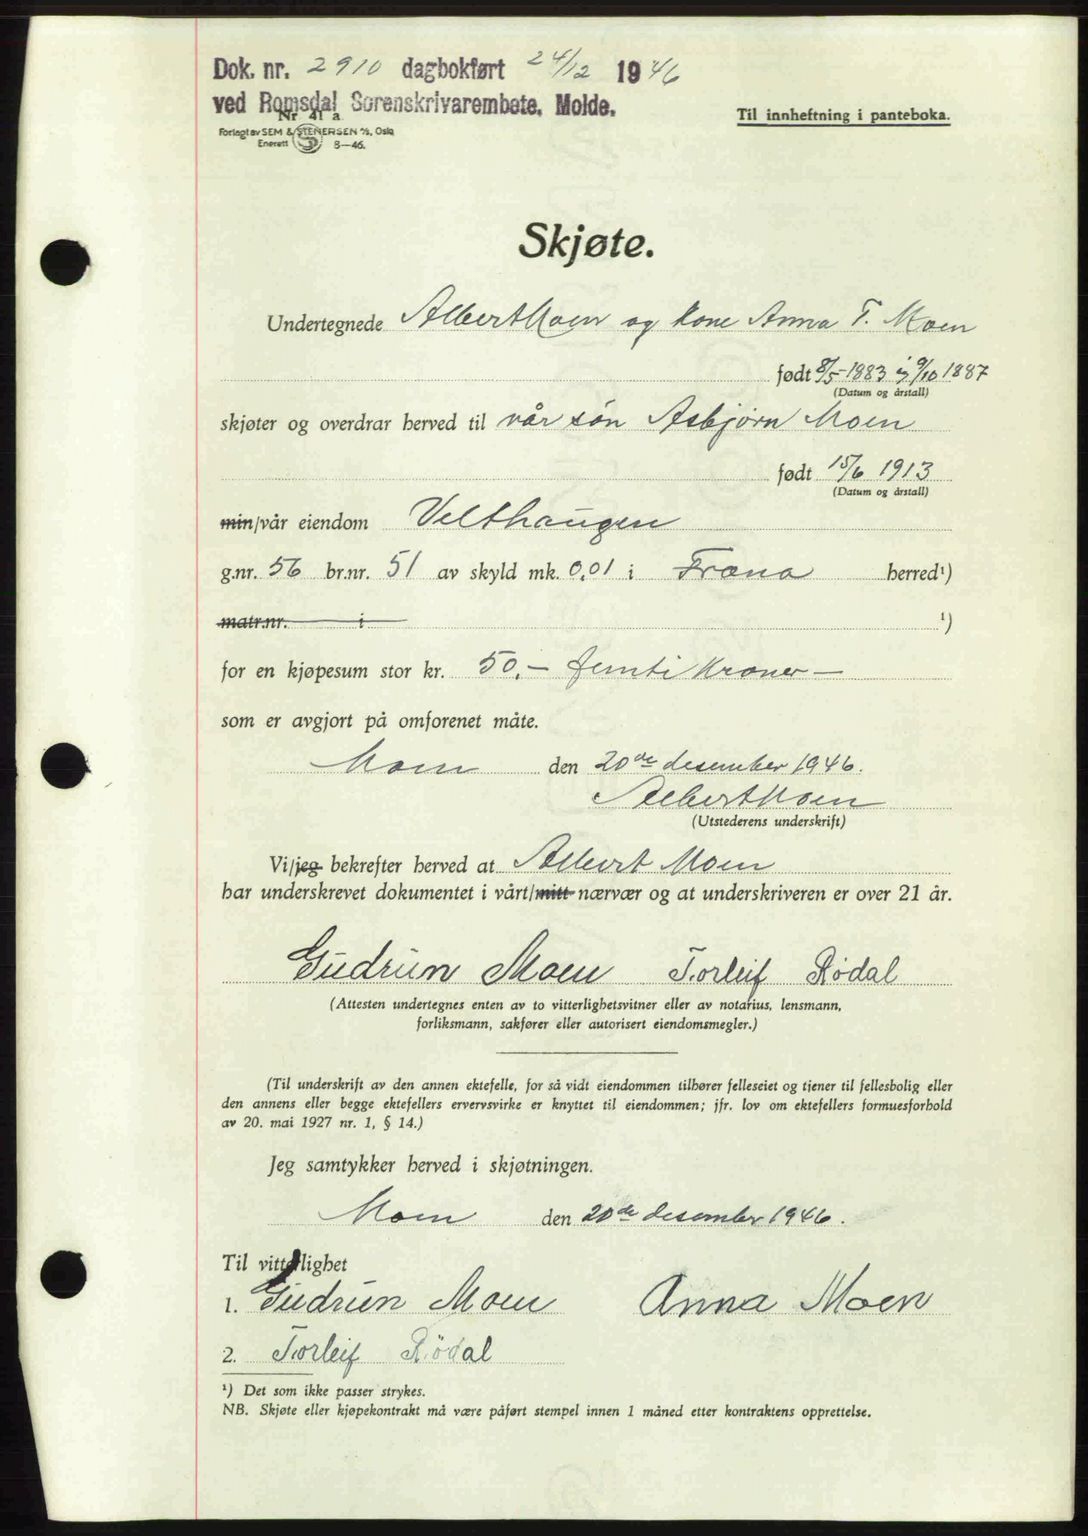 Dok. nr. 2910 dagbokført 24/12 1946
ved Romsdal Sorenskrivarembete, Molde.
Nr 41 a
Forlagt av SEM & STENERSEN A/S, Oslo
Enerett 8-46.
Til innheftning i panteboka.
Skjøte.
Undertegnede Albert Moen og kone Anna T. Moen
født 8/5-1883 og 9/10 1887
(Datum og årstall)
skjøter og overdrar herved til vår søn Asbjørn Moen
født 15/6 1913
(Datum og årstall)
min/vår eiendom Velthaugen
g.nr. 56 br.nr. 51 av skyld mk. 0,01 i Fræna herred¹)
matr.nr. i ¹)
for en kjøpesum stor kr. 50,- femti kroner -
som er avgjort på omforenet måte.
Moen den 20de desember 1946.
Albert Moen
(Utstederens underskrift)
Vi/jeg bekrefter herved at Albert Moen
har underskrevet dokumentet i vårt/mitt nærvær og at underskriveren er over 21 år.
Gudrun Moen Torleif Rødal
(Attesten undertegnes enten av to vitterlighetsvitner eller av notarius, lensmann,
forliksmann, sakfører eller autorisert eiendomsmegler.)
(Til underskrift av den annen ektefelle, for så vidt eiendommen tilhører felleseiet og tjener til fellesbolig eller
den annens eller begge ektefellers ervervsvirke er knyttet til eiendommen; jfr. lov om ektefellers formuesforhold
av 20. mai 1927 nr. 1, § 14.)
Jeg samtykker herved i skjøtningen.
Moen den 20de desember 1946.
Til vitterlighet
1. Gudrun Moen Anna Moen
2. Torleif Rødal
¹) Det som ikke passer strykes.
NB. Skjøte eller kjøpekontrakt må være påført stempel innen 1 måned etter kontraktens opprettelse.